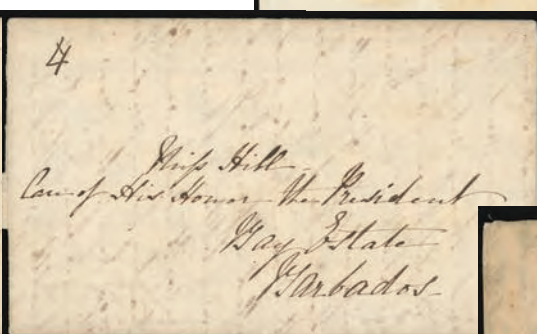 4
Miss Hill
Care of His Honor the President
Bay Estate
Barbados